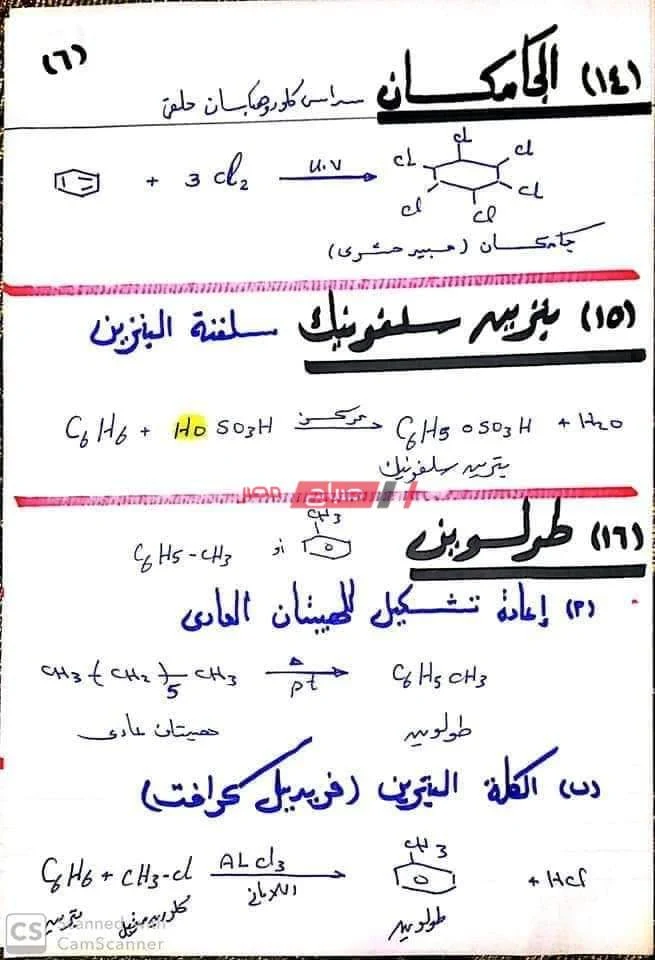 (٦)
(١٤) الجامكسان سداسى كلوروهكسان حلقى
+ 3 Cl2 U.V Cl Cl Cl Cl Cl Cl
جامكسان (مبيد حشرى)
(١٥) بنزين سلفونيك سلفنة البنزين
C6H6 + HO SO3H مركز C6H5 OSO3H + H2O
بنزين سلفونيك
صباح مصر
(١٦) طولوين CH3 أو C6H5-CH3
(٢) إعادة تشكيل للهبتان العادى
CH3 ( CH2 )5 CH3 Δ pt C6H5CH3
هبتان عادى طولوين
(ب) الكلة البنزين (فريدل كرافت)
C6H6 + CH3-Cl ALCl3 CH3 + HCl
بنزين كلوريد ميثيل اللامائى طولوين
CS Scanned with
CamScanner